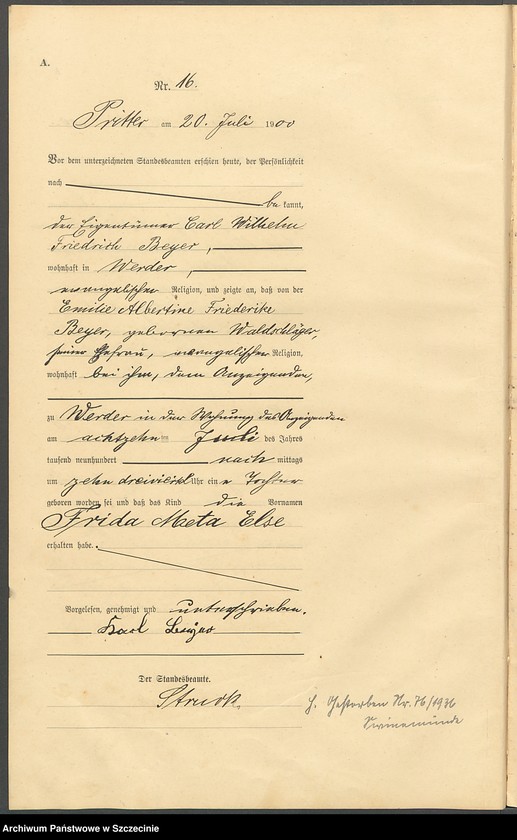 A.
Nr. 16.
Pritter am 20. Juli 1900
Vor dem unterzeichneten Standesbeamten erschien heute, der Persönlichkeit
nach
be kannt,
der Eigentümer Carl Wilhelm
Friedrich Beyer,
wohnhaft in Werder,
evangelischer Religion, und zeigte an, daß von der
Emilie Albertine Friederike
Beyer, geborenen Waldschläger,
seiner Ehefrau, evangelischer Religion,
wohnhaft bei ihm, dem Anzeigenden,
zu Werder in der Wohnung des Anzeigenden
am achtzehn ten Juli des Jahres
tausend neunhundert nach mittags
um zehn dreiviertel Uhr ein e Tochter
geboren worden sei und daß das Kind die Vornamen
Frida Meta Else
erhalten habe.
Vorgelesen, genehmigt und unterschrieben.
Karl Beyer
Der Standesbeamte.
Struck.
Gestorben Nr. 76/1936
Swinemünde
Archiwum Państwowe w Szczecinie